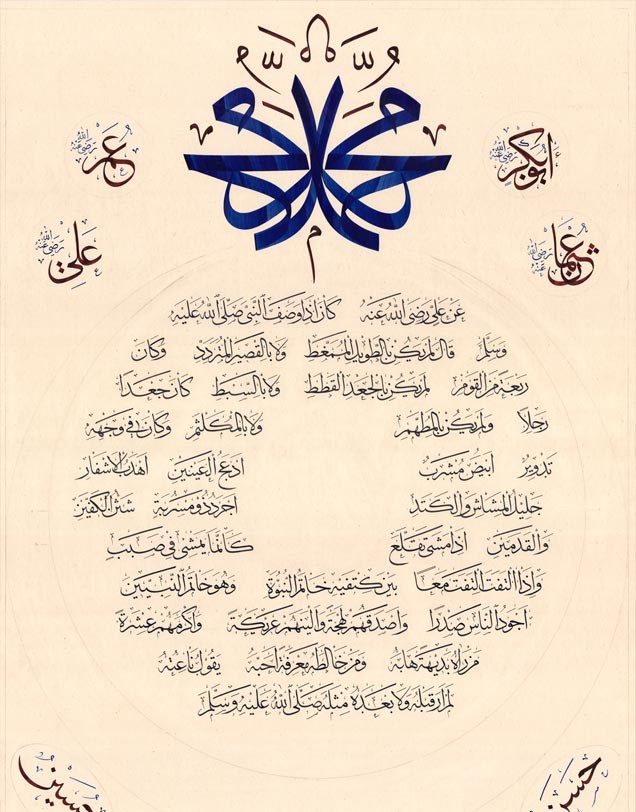 محمد
ابوبكر رضي الله عنه
عمر رضي الله عنه
عثمان رضي الله عنه
علي رضي الله عنه
عن علي رضي الله عنه كان اذا وصف النبي صلى الله عليه
وسلم قال لم يكن بالطويل الممغط ولا بالقصير المتردد وكان
ربعة من القوم لم يكن بالجعد القطط ولا بالسبط كان جعدا
رجلا ولم يكن بالمطهم ولا بالمكلثم وكان في وجهه
تدوير ابيض مشرب ادعج العينين اهدب الاشفار
جليل المشاش والكتد اجرد ذو مسربة شثن الكفين
والقدمين اذا مشى تقلع كانما يمشي في صبب
واذا التفت التفت معا بين كتفيه خاتم النبوة وهو خاتم النبيين
اجود الناس صدرا واصدقهم لهجة والينهم عريكة واكرمهم عشرة
من راه بديهة هابه ومن خالطه بمعرفة احبه يقول ناعته
لم ار قبله ولا بعده مثله صلى الله عليه وسلم
حسن
حسين